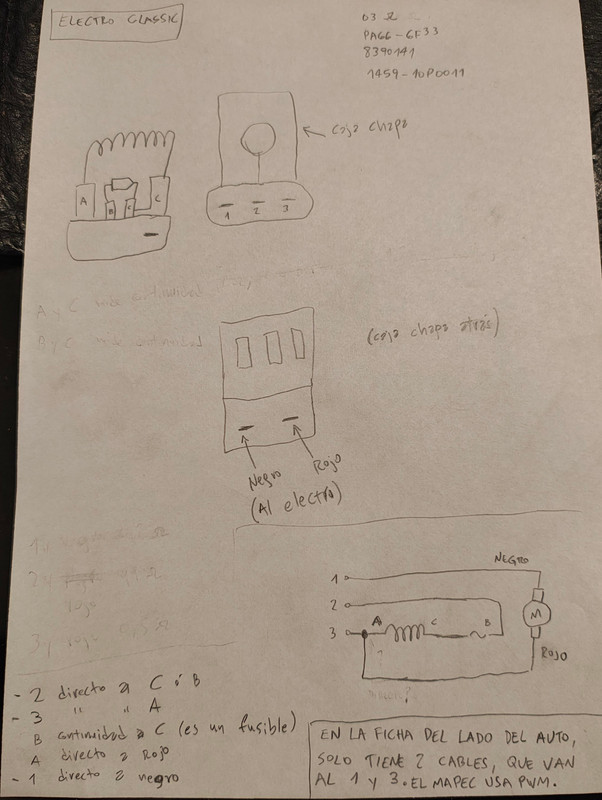 ELECTRO CLASSIC
03 Ω
PAGG-GF33
8390141
1459-10P0011
caja chapa
A
B
C
C
1 2 3
A y C
B y C
(caja chapa atrás)
Negro
Rojo
(Al electro)
1 y
2 y
rojo
3 y rojo
NEGRO
1
2
A C B
3
M
ROJO
- 2 directo a C ó B
- 3 " " A
B continuidad a C (es un fusible)
A directo a Rojo
- 1 directo a negro
EN LA FICHA DEL LADO DEL AUTO,
SOLO TIENE 2 CABLES, QUE VAN
AL 1 Y 3. EL MAPEC USA PWM.